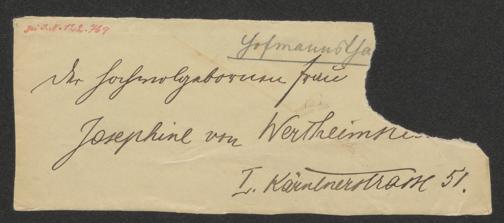 zu I.N. 122.769
Hofmannstha
Der hochwolgebornen Frau
Josephine von Wertheimste
I. Kärntnerstrasse 51.